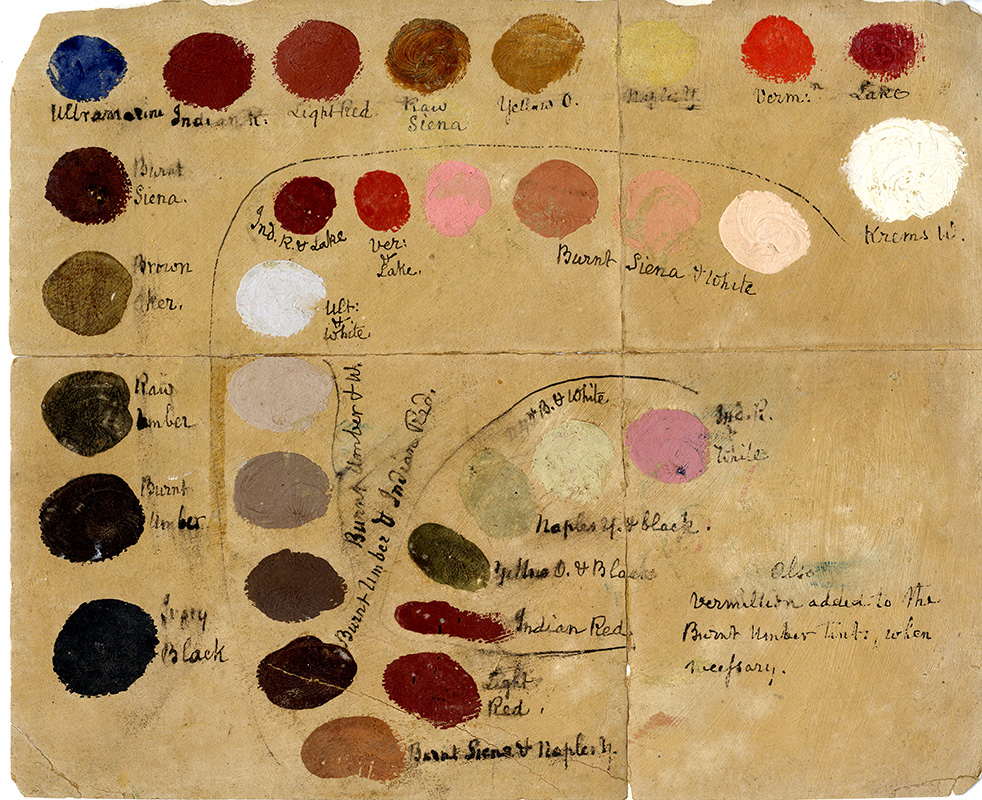 Ultramarine
Indian R.
Light Red.
Raw
Siena
Yellow O.
Naples Y
Verm:n
Lake
Burnt
Siena.
Krems W.
Ind. R. & Lake
Ver:
&
Lake.
Burnt Siena & White
Brown
Oker.
Ult:
&
White.
Raw
Umber
Burnt Umber & W.
Burnt Umber & Indian Red.
B. & White
Ind. R.
&
White
Burnt
Umber.
Naples Y. & black.
Yellow O. & Black
also
Vermillion added to the
Burnt Umber tints, when
necessary.
Ivory
Black
Indian Red.
Light
Red.
Burnt Siena & Naples Y.